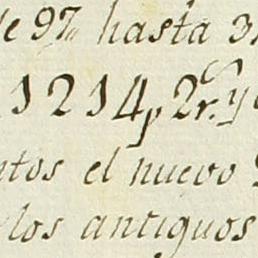 de 97 hasta 3
1214p 2r. y
ntos el nuevo
los antiguos